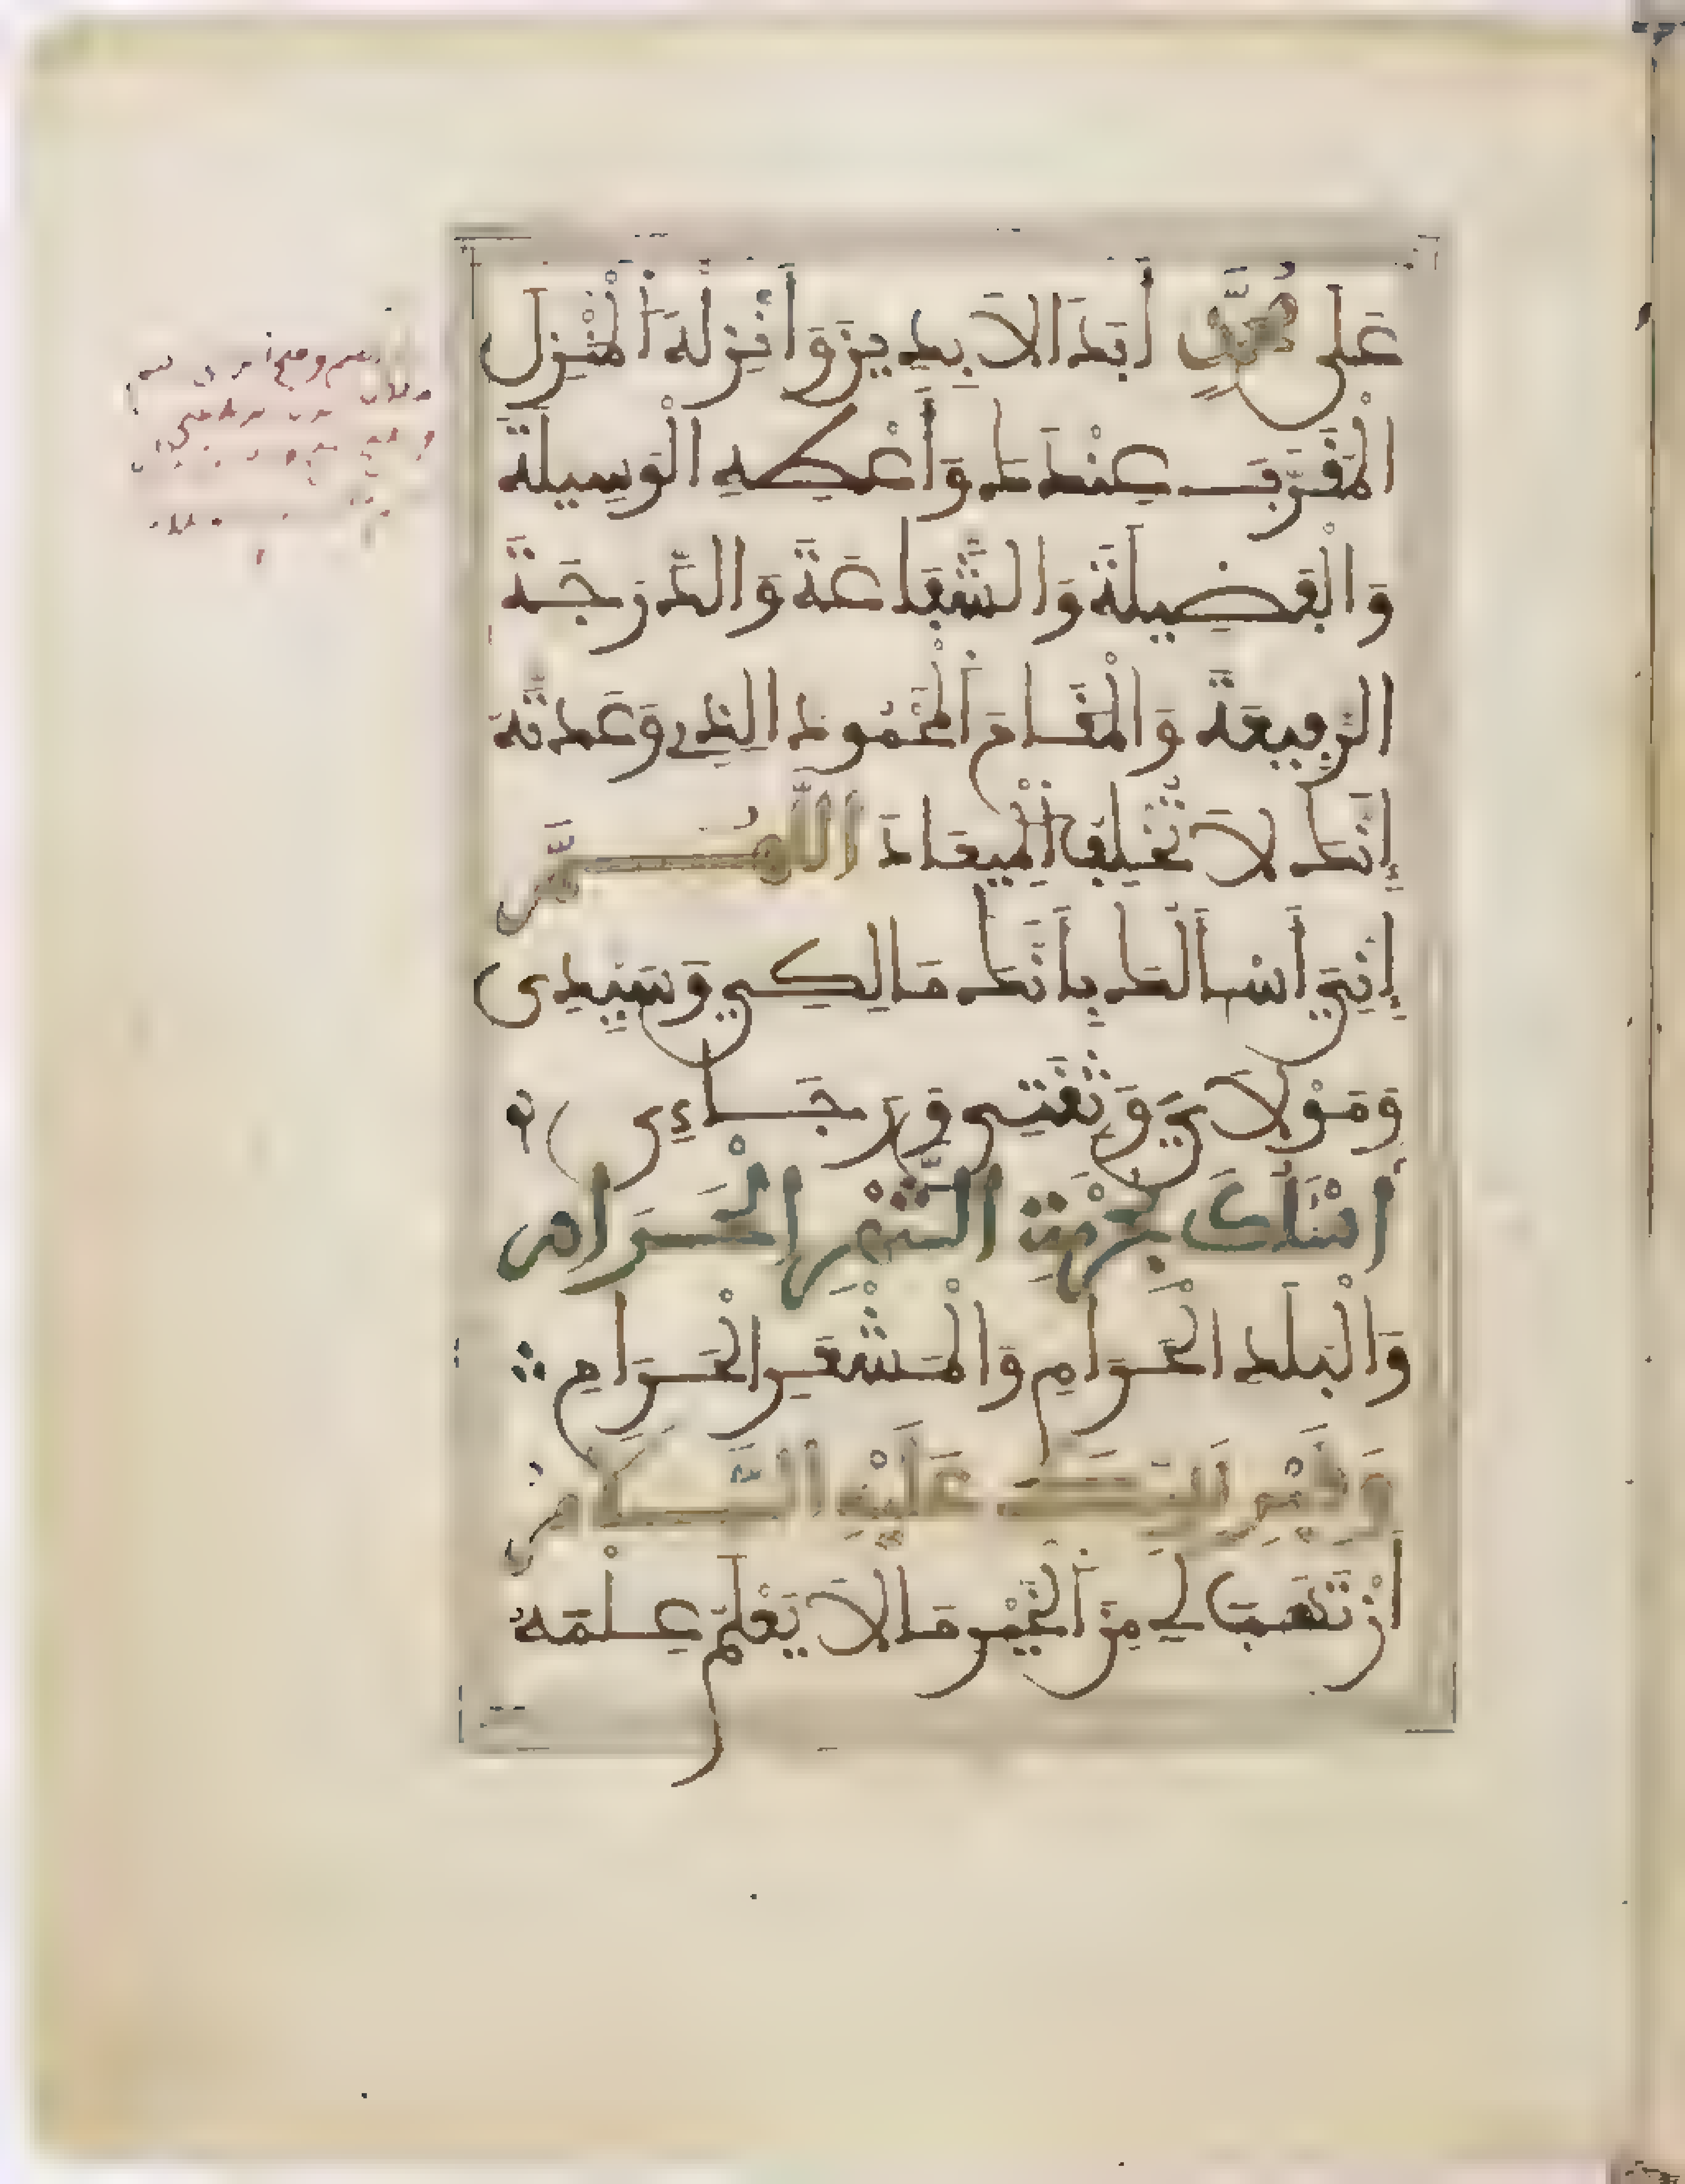 عَلَى مُحَمَّدٍ أَبَدَ الاَبِدِينَ وَأَنزِلْهُ الْمُنزَلَ
الْمُقَرَّبَ عِنْدَكَ وَأَعْطِهِ الْوَسِيلَةَ
وَالْفَضِيلَةَ وَالشَّفَاعَةَ وَالدَّرَجَةَ
الرَّفِيعَةَ وَالْمَقَامَ الْمَحْمُودَ الذِي وَعَدتَّهُ
إِنَّكَ لاَ تُخْلِفُ الْمِيعَادَ اللَّهُمَّ
إِنِّي أَسْأَلُكَ بِأَنَّكَ مَالِكِي وَسَيِّدِي
وَمَوْلاَيَ وَثِقَتِي وَرَجَاءِي
أَسْأَلُكَ بِحُرْمَةِ الشَّهْرِ الْحَرَامِ
وَالْبَلَدِ الْحَرَامِ وَالْمَشْعَرِ الْحَرَامِ
وَقَبْرِ نَبِيِّكَ عَلَيْهِ السَّلاَمُ
أَنْ تَهَبَ لِي مِنَ الْخَيْرِ مَا لاَ يَعْلَمُ عِلْمَهُ